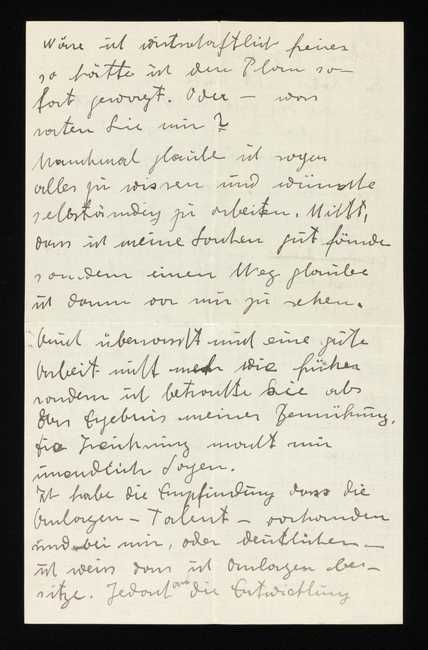 Wäre ich wirtschaftlich freier
so hätte ich den Plan so-
fort gewagt. Oder – was
raten Sie mir?
Manchmal glaube ich sogar
alles zu wissen und wünschte
selbständig zu arbeiten. Nicht,
dass ich meine Sachen gut fände
sondern einen Weg glaube
ich dann vor mir zu sehen.
Auch überrascht mich eine gute
Arbeit nicht mehr wie früher
sondern ich betrachte sie als
das Ergebnis meiner Bemühung.
Die Zeichnung macht mir
unendlich Sorgen.
Ich habe die Empfindung dass die
Anlagen – Talent – vorhanden
sind bei mir, oder deutlicher –
ich weiss dass ich Anlagen be-
sitze. Jedoch an die Entwicklung